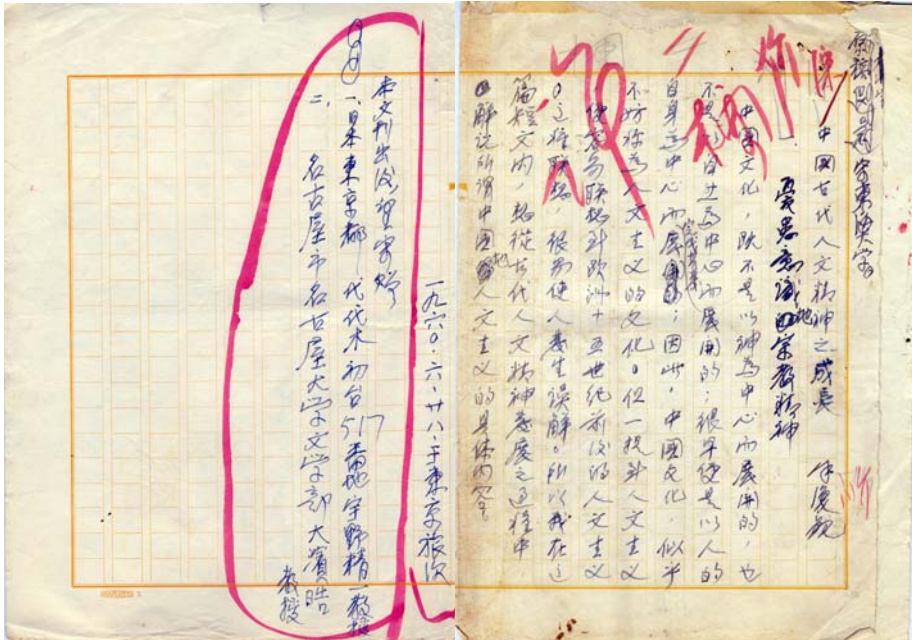 中國古代人文精神之成長
徐復觀
憂患意識的宗教精神
中國文化,既不是以神為中心而展開的,也
不是以自然為中心而展開的;很早便是以人的
自身為中心而展開的;因此,中國文化,似乎
不妨称為人文主义的文化。但一提到人文主义
便容易联想到欧洲十五世紀前後的人文主义
。这种联想,很易使人發生誤解。所以我在这
篇短文内,想從古代人文精神發展之過程中,
解说所谓中國地人文主义的具体内容。
一九六〇·六·廿八·于東京旅次
本文刊出後,望寄贈
一、日本東京都 代代木初台517番地宇野精一教授
二、名古屋市名古屋大学文学部大濱晧
教授